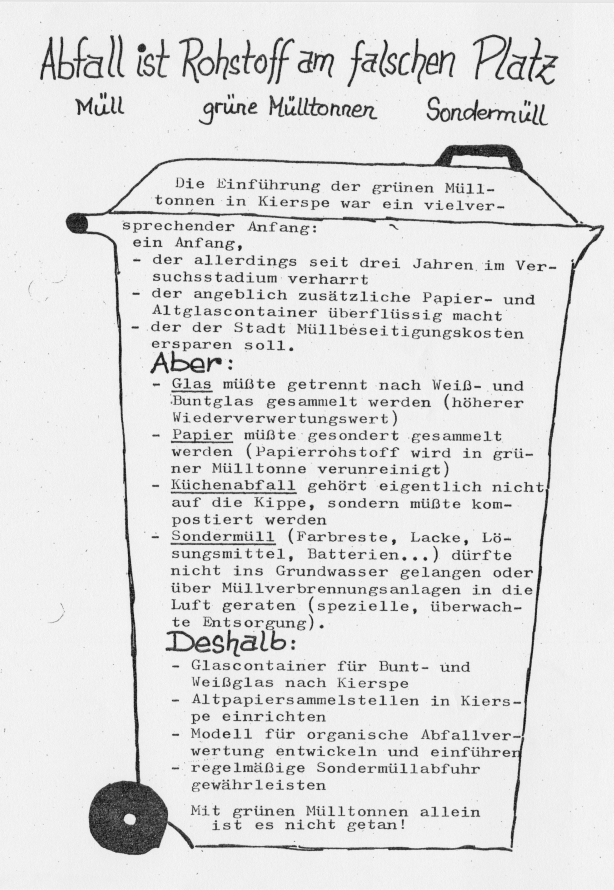 Abfall ist Rohstoff am falschen Platz
Müll grüne Mülltonnen Sondermüll
Die Einführung der grünen Müll-
tonnen in Kierspe war ein vielver-
sprechender Anfang:
ein Anfang,
- der allerdings seit drei Jahren im Ver-
suchsstadium verharrt
- der angeblich zusätzliche Papier- und
Altglascontainer überflüssig macht
- der der Stadt Müllbeseitigungskosten
ersparen soll.
Aber:
- Glas müßte getrennt nach Weiß- und
Buntglas gesammelt werden (höherer
Wiederverwertungswert)
- Papier müßte gesondert gesammelt
werden (Papierrohstoff wird in grü-
ner Mülltonne verunreinigt)
- Küchenabfall gehört eigentlich nicht
auf die Kippe, sondern müßte kom-
postiert werden
- Sondermüll (Farbreste, Lacke, Lö-
sungsmittel, Batterien...) dürfte
nicht ins Grundwasser gelangen oder
über Müllverbrennungsanlagen in die
Luft geraten (spezielle, überwach-
te Entsorgung).
Deshalb:
- Glascontainer für Bunt- und
Weißglas nach Kierspe
- Altpapiersammelstellen in Kiers-
pe einrichten
- Modell für organische Abfallver-
wertung entwickeln und einführen
- regelmäßige Sondermüllabfuhr
gewährleisten
Mit grünen Mülltonnen allein
ist es nicht getan!